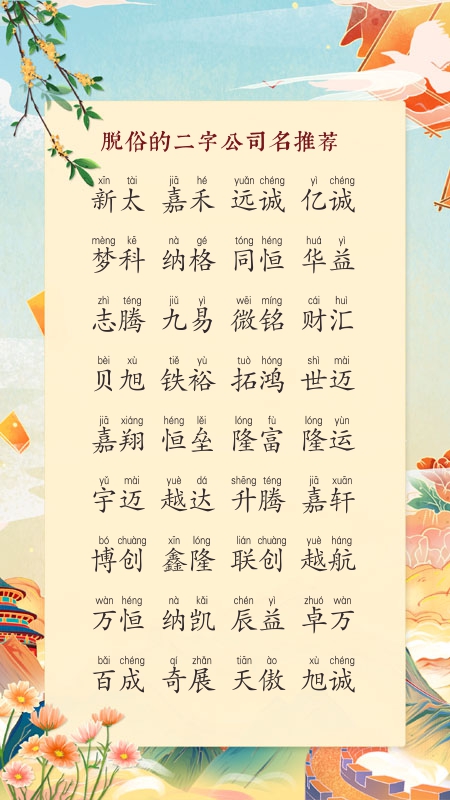 脱俗的二字公司名推荐
xīn tài jiā hé yuǎn chéng yì chéng
新太 嘉禾 远诚 亿诚
mèng kē nà gé tóng héng huá yì
梦科 纳格 同恒 华益
zhì téng jiǔ yì wēi míng cái huì
志腾 九易 微铭 财汇
bèi xù tiě yù tuò hóng shì mài
贝旭 铁裕 拓鸿 世迈
jiā xiáng héng lěi lóng fù lóng yùn
嘉翔 恒垒 隆富 隆运
yǔ mài yuè dá shēng téng jiā xuān
宇迈 越达 升腾 嘉轩
bó chuàng xīn lóng lián chuàng yuè háng
博创 鑫隆 联创 越航
wàn héng nà kǎi chén yì zhuó wàn
万恒 纳凯 辰益 卓万
bǎi chéng qí zhǎn tiān ào xù chéng
百成 奇展 天傲 旭诚